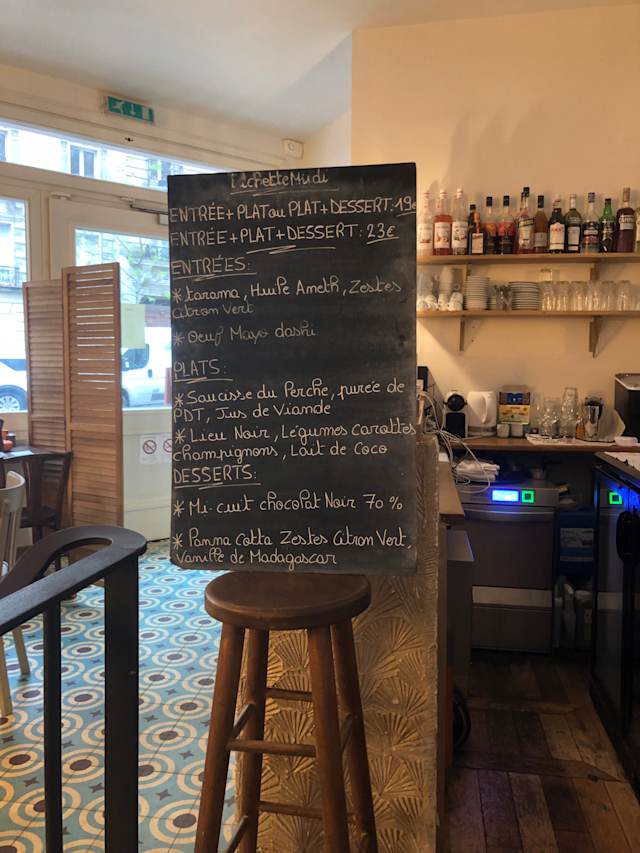 LichetteMidi
ENTRÉE+PLAT ou PLAT+DESSERT: 19€
ENTRÉE+PLAT+DESSERT: 23€
ENTRÉES:
* tarama, Huile Aneth, Zestes
Citron Vert
* Oeuf Mayo dashi
PLATS:
* Saucisse du Perche, purée de
PDT, Jus de Viande
* Lieu Noir, Légumes carottes
champignons, Lait de Coco
DESSERTS:
* Mi-cuit chocolat Noir 70 %
* Panna Cotta Zestes Citron Vert,
Vanille de Madagascar